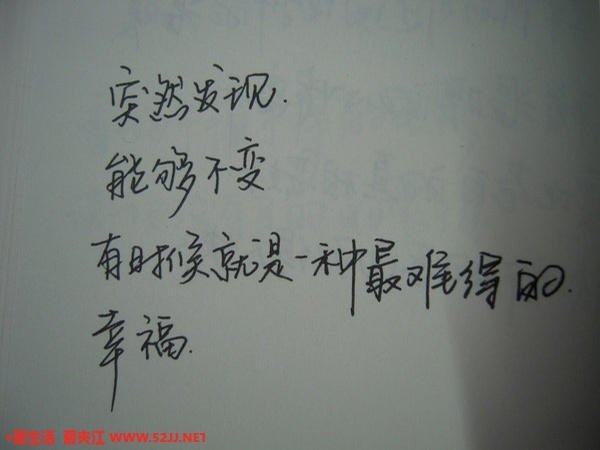 突然发现.
能够不变
有时候就是一种最难得的.
幸福.
爱生活 爱夹江 WWW.52JJ.NET